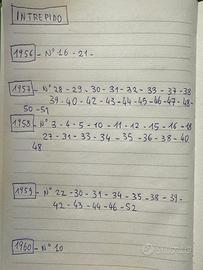 INTREPIDO
1956 - N° 16 - 21 -
1957 - N° 28 - 29 - 30 - 31 - 32 - 33 - 37 - 38
39 - 40 - 42 - 43 - 44 - 45 - 46 - 47 - 48 -
50 - 51
1958 - N° 3 - 4 - 5 - 10 - 11 - 12 - 15 - 16 - 18
27 - 31 - 33 - 34 - 35 - 36 - 38 - 40
48
1959 - N° 22 - 30 - 31 - 34 - 35 - 38 - 39 -
42 - 43 - 44 - 46 - 52
1960 - N° 10
subito